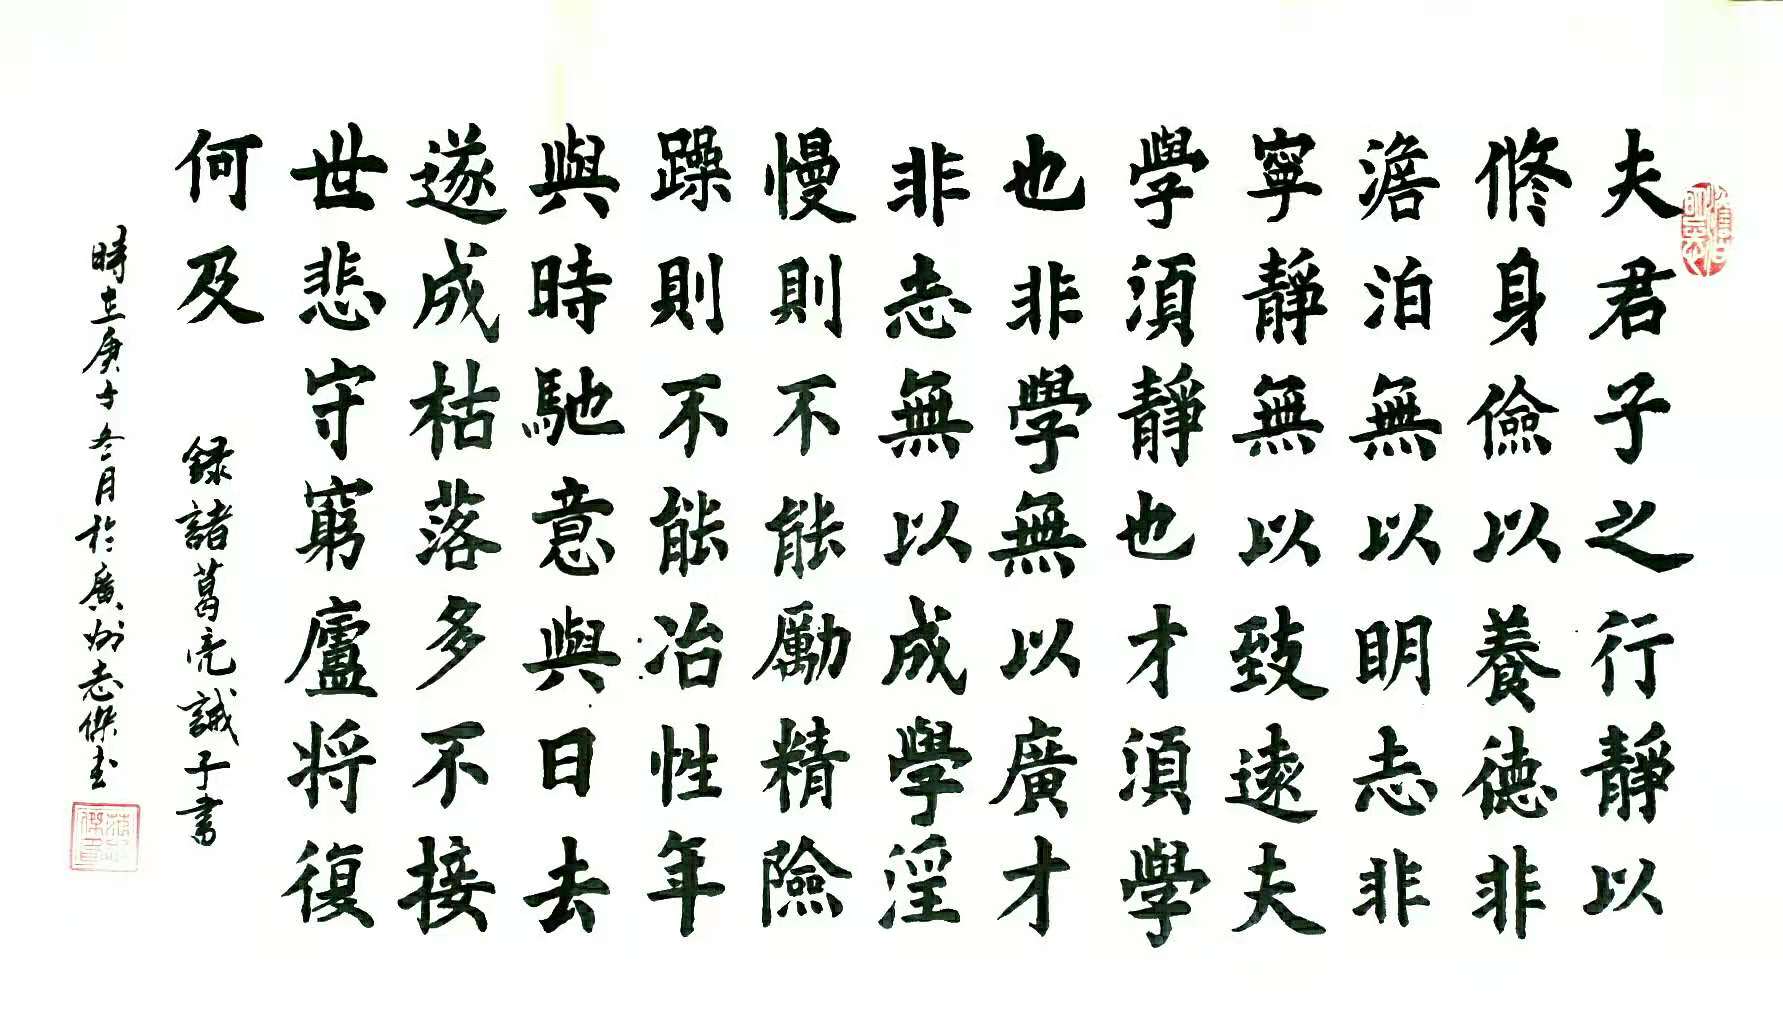 夫君子之行靜以
修身儉以養德非
澹泊無以明志非
寧靜無以致遠夫
學須靜也才須學
也非學無以廣才
非志無以成學淫
慢則不能勵精險
躁則不能冶性年
與時馳意與日去
遂成枯落多不接
世悲守窮廬將復
何及
錄諸葛亮誡子書
時在庚子冬月於廣州志傑書